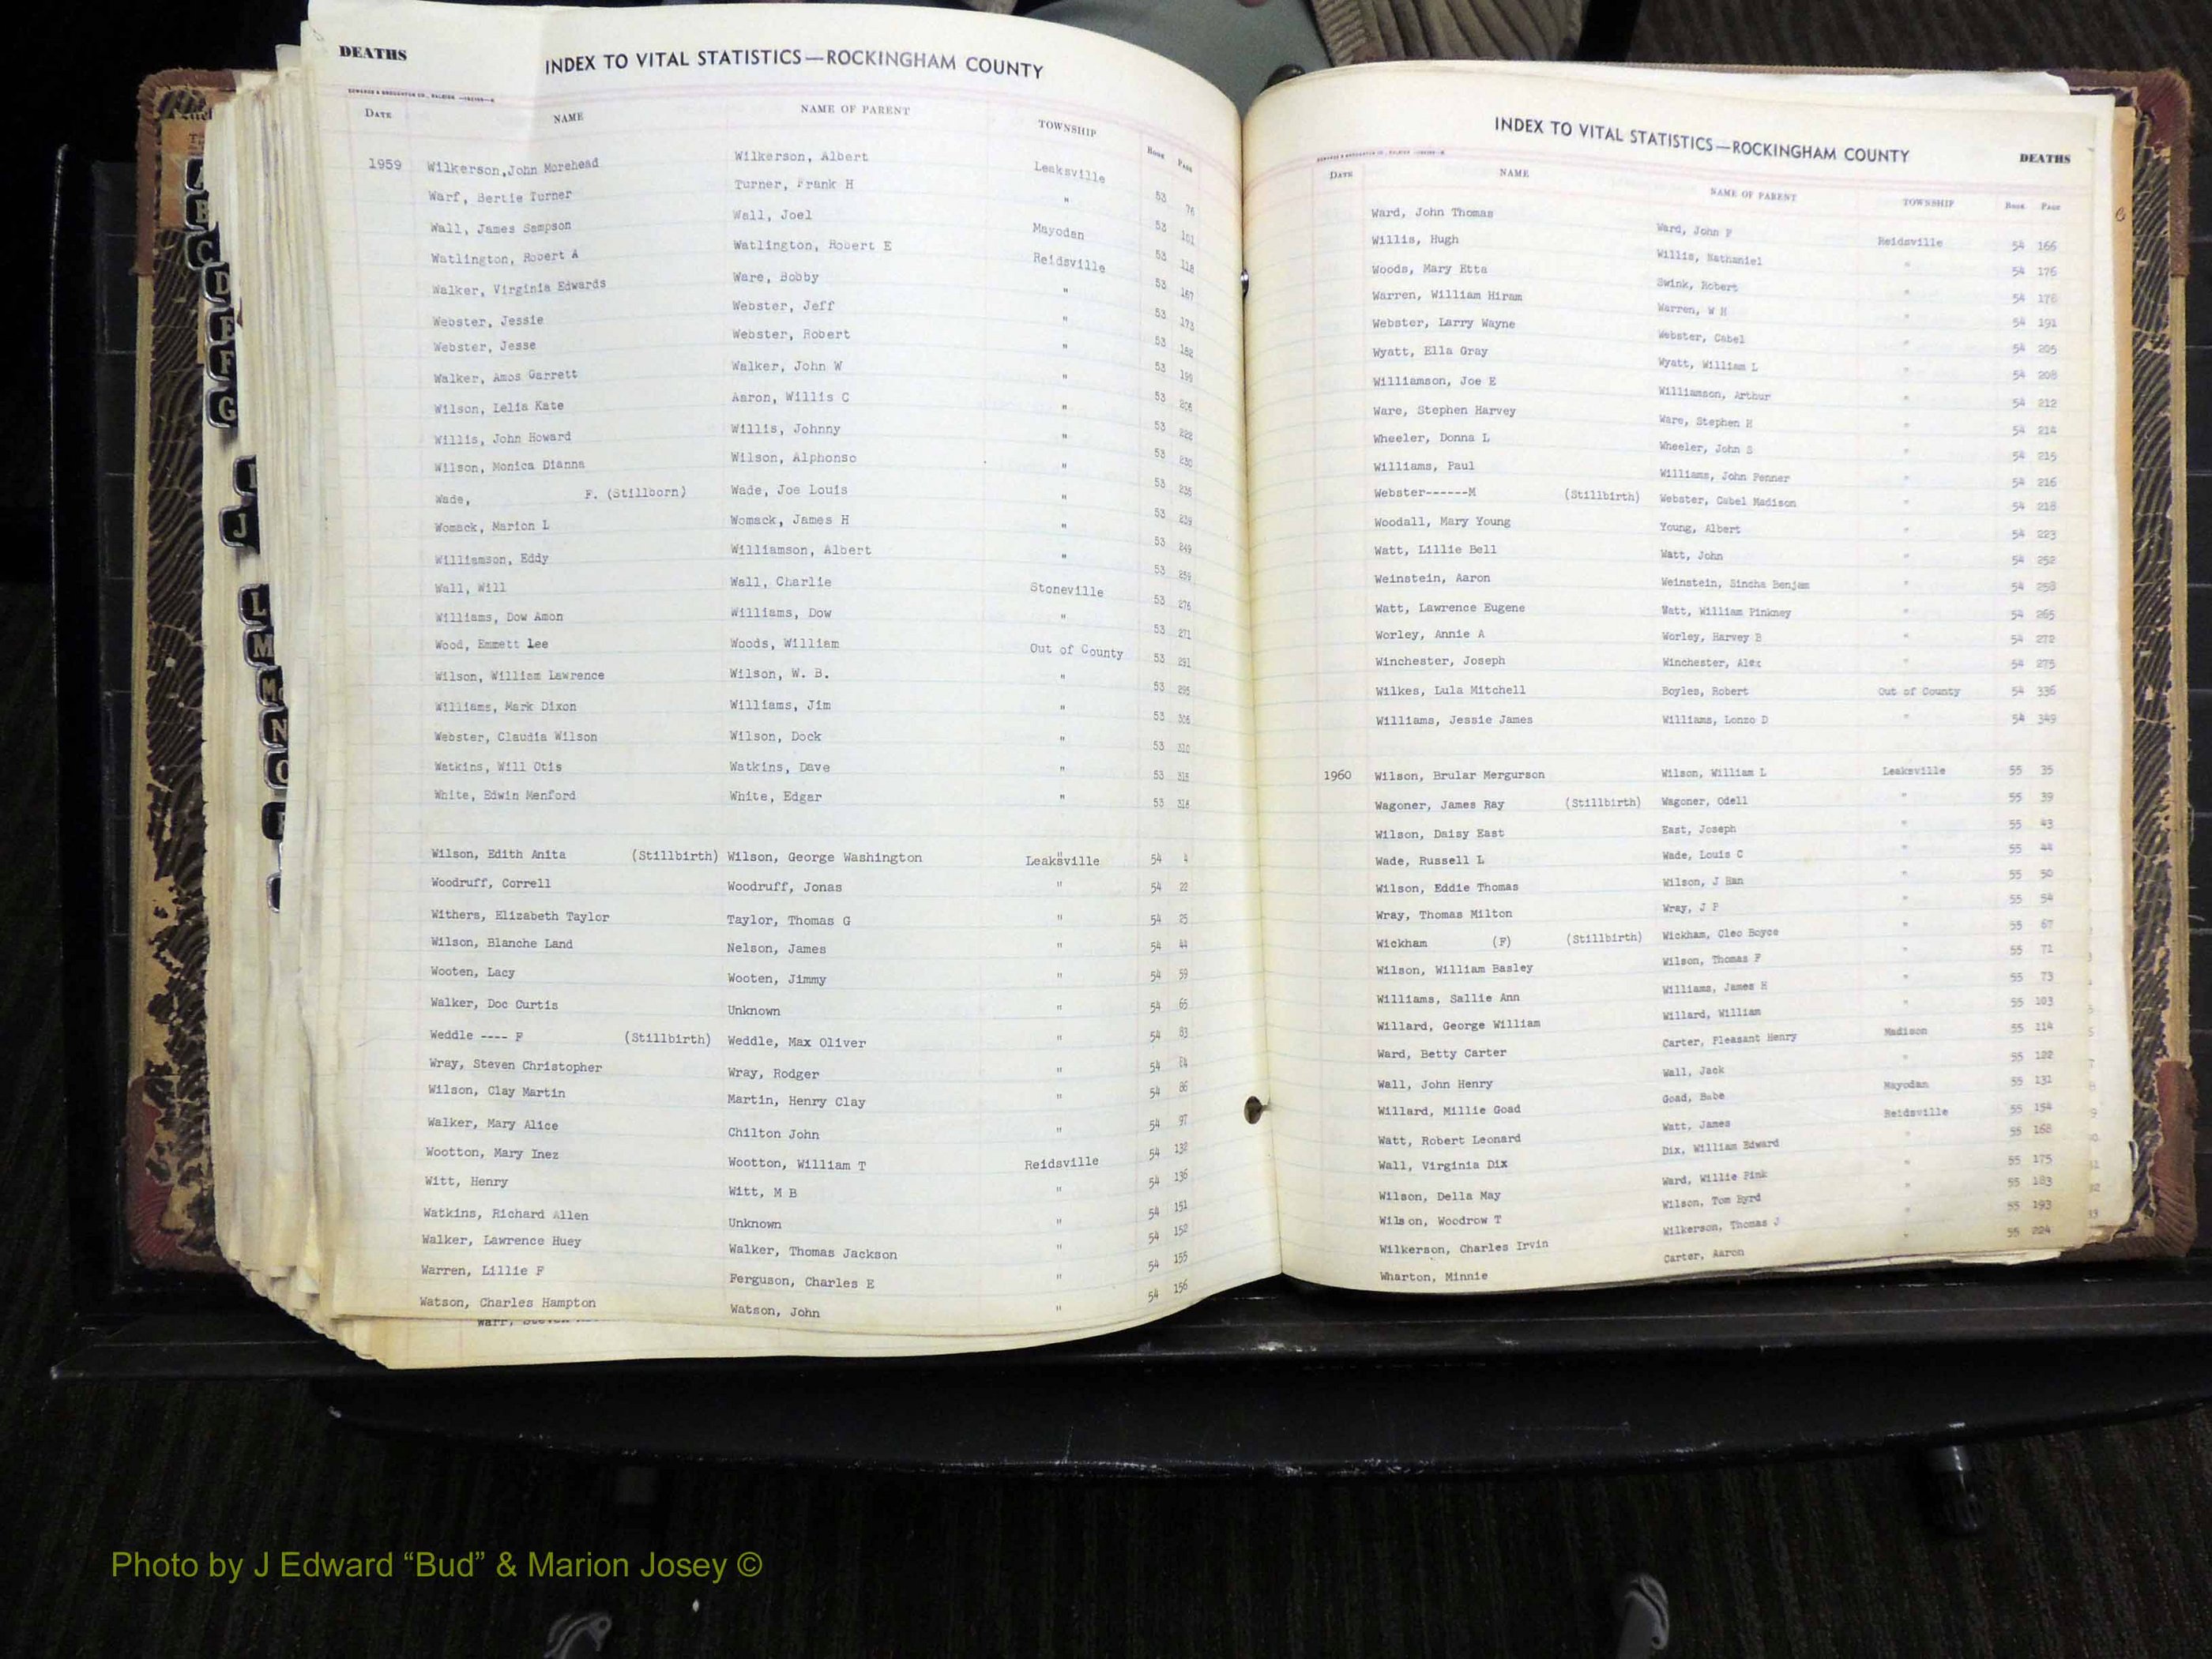 DEATHS
INDEX TO VITAL STATISTICS—ROCKINGHAM COUNTY
DATE NAME NAME OF PARENT TOWNSHIP BOOK PAGE
1959 Wilkerson,John Morehead Wilkerson, Albert Leaksville 53 76
Warf, Bertie Turner Turner, Frank H " 53 101
Wall, James Sampson Wall, Joel Mayodan 53 118
Watlington, Robert A Watlington, Robert E Reidsville 53 167
Walker, Virginia Edwards Ware, Bobby " 53 173
Webster, Jessie Webster, Jeff " 53 182
Webster, Jesse Webster, Robert " 53 199
Walker, Amos Garrett Walker, John W " 53 206
Wilson, Lelia Kate Aaron, Willis C " 53 222
Willis, John Howard Willis, Johnny " 53 230
Wilson, Monica Dianna Wilson, Alphonso " 53 235
Wade, F. (Stillborn) Wade, Joe Louis " 53 239
Womack, Marion L Womack, James H " 53 249
Williamson, Eddy Williamson, Albert " 53 259
Wall, Will Wall, Charlie Stoneville 53
Williams, Dow Amon Williams, Dow " 53 271
Wood, Emmett lee Woods, William Out of County 53 291
Wilson, William Lawrence Wilson, W. B. " 53 295
Williams, Mark Dixon Williams, Jim " 53 306
Webster, Claudia Wilson Wilson, Dock " 53 310
Watkins, Will Otis Watkins, Dave " 53 315
White, Edwin Menford White, Edgar " 53 318
Wilson, Edith Anita (Stillbirth) Wilson, George Washington Leaksville 54 4
Woodruff, Correll Woodruff, Jonas " 54 22
Withers, Elizabeth Taylor Taylor, Thomas G " 54 25
Wilson, Blanche Land Nelson, James " 54 44
Wooten, Lacy Wooten, Jimmy " 54 59
Walker, Doc Curtis Unknown " 54 65
Weddle ---- F (Stillbirth) Weddle, Max Oliver " 54 83
Wray, Steven Christopher Wray, Rodger " 54 84
Wilson, Clay Martin Martin, Henry Clay " 54 86
Walker, Mary Alice Chilton John " 54 97
Wootton, Mary Inez Wootton, William T Reidsville 54 132
Witt, Henry Witt, M B " 54 136
Watkins, Richard Allen Unknown " 54 151
Walker, Lawrence Huey Walker, Thomas Jackson " 54 152
Warren, Lillie F Ferguson, Charles E " 54 155
Watson, Charles Hampton Watson, John " 54 156
INDEX TO VITAL STATISTICS—ROCKINGHAM COUNTY
DEATHS
DATE NAME NAME OF PARENT TOWNSHIP BOOK PAGE
Ward, John Thomas Ward, John F Reidsville 54 166
Willis, Hugh Willis, Nathaniel " 54 176
Woods, Mary Etta Swink, Robert " 54 178
Warren, William Hiram Warren, W H " 54 191
Webster, Larry Wayne Webster, Cabel " 54 205
Wyatt, Ella Gray Wyatt, William L " 54 208
Williamson, Joe E Williamson, Arthur " 54 212
Ware, Stephen Harvey Ware, Stephen H " 54 214
Wheeler, Donna L Wheeler, John S " 54 215
Williams, Paul Williams, John Penner " 54 216
Webster------M (Stillbirth) Webster, Cabel Madison " 54 218
Woodall, Mary Young Young, Albert " 54 223
Watt, Lillie Bell Watt, John " 54 252
Weinstein, Aaron Weinstein, Simcha Benjam " 54 258
Watt, Lawrence Eugene Watt, William Pinkney " 54 265
Worley, Annie A Worley, Harvey B " 54 272
Winchester, Joseph Winchester, Alex " 54 275
Wilkes, Lula Mitchell Boyles, Robert Out of County 54 336
Williams, Jessie James Williams, Lonzo D " 54 349
1960 Wilson, Brular Mergurson Wilson, William L Leaksville 55 35
Wagoner, James Ray (Stillbirth) Wagoner, Odell " 55 39
Wilson, Daisy East East, Joseph " 55 43
Wade, Russell L Wade, Louis C " 55 44
Wilson, Eddie Thomas Wilson, J Han " 55 50
Wray, Thomas Milton Wray, J P " 55 54
Wickham (F) (Stillbirth) Wickham, Cleo Boyce " 55 67
Wilson, William Basley Wilson, Thomas F " 55 71
Williams, Sallie Ann Williams, James H " 55 73
Willard, George William Willard, William " 55 103
Ward, Betty Carter Carter, Pleasant Henry Madison 55 114
Wall, John Henry Wall, Jack " 55 122
Willard, Millie Goad Goad, Babe Mayodan 55 131
Watt, Robert Leonard Watt, James Reidsville 55 154
Wall, Virginia Dix Dix, William Edward " 55 168
Wilson, Della May Ward, Willie Pink " 55 175
Wilson, Woodrow T Wilson, Tom Byrd " 55 183
Wilkerson, Charles Irvin Wilkerson, Thomas J " 55 193
Wharton, Minnie Carter, Aaron " 55 224
A
B
C
D
E
F
G
J
L
M
Mc
N
O
Photo by J Edward “Bud” & Marion Josey ©